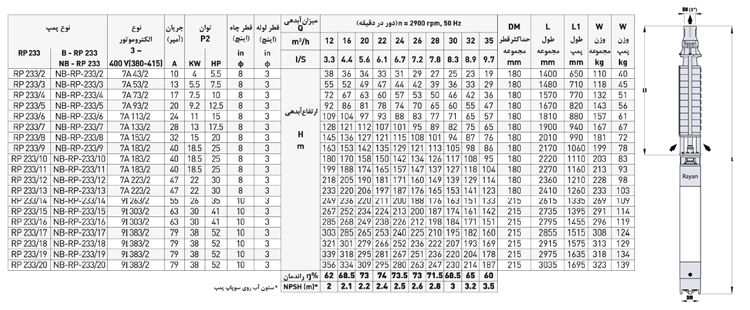 نوع پمپ نوع الکتروموتور جریان (آمپر) توان P2 قطر چاه (اینچ) قطر لوله (اینچ) میزان آبدهی Q n = 2900 rpm, 50 Hz (دور در دقیقه) DM حداکثر قطر مجموعه mm L طول مجموعه mm L1 طول پمپ mm W وزن مجموعه kg W وزن پمپ kg
RP 233 B - RP 233 NB - RP 233 3 ~ 400 V(380-415) A KW HP in ϕ in ϕ m³/h 12 16 20 22 24 26 28 30 32 35
l/S 3.3 4.4 5.6 6.1 6.7 7.2 7.8 8.3 8.9 9.7
ارتفاع آبدهی H m
RP 233/2 NB-RP-233/2 7A 43/2 10 4 5.5 8 3 38 36 34 33 31 29 27 25 23 19 180 1400 650 110 40
RP 233/3 NB-RP-233/3 7A 53/2 13 5.5 7.5 8 3 55 52 49 47 44 42 39 36 33 28 180 1480 710 118 45
RP 233/4 NB-RP-233/4 7A 73/2 17 7.5 10 8 3 73 70 66 63 60 57 53 48 43 36 180 1570 770 132 51
RP 233/5 NB-RP-233/5 7A 93/2 20 9.2 12.5 8 3 92 86 81 78 74 70 65 60 55 47 180 1670 820 143 56
RP 233/6 NB-RP-233/6 7A 113/2 24 11 15 8 3 109 104 97 93 88 83 77 71 65 57 180 1810 880 157 61
RP 233/7 NB-RP-233/7 7A 133/2 28 13 17.5 8 3 128 121 112 107 101 95 89 82 75 65 180 1900 940 167 67
RP 233/8 NB-RP-233/8 7A 153/2 32 15 20 8 3 145 136 127 121 115 108 101 94 87 76 180 2010 990 181 72
RP 233/9 NB-RP-233/9 7A 183/2 40 18.5 25 8 3 163 153 142 135 129 121 113 105 98 86 180 2170 1060 199 78
RP 233/10 NB-RP-233/10 7A 183/2 40 18.5 25 8 3 180 170 158 150 142 134 126 117 108 95 180 2220 1110 203 83
RP 233/11 NB-RP-233/11 7A 183/2 40 18.5 25 8 3 199 188 174 165 157 147 137 127 118 103 180 2270 1160 213 93
RP 233/12 NB-RP-233/12 7A 223/2 47 22 30 8 3 218 205 190 181 171 160 149 139 129 114 180 2360 1210 228 98
RP 233/13 NB-RP-233/13 7A 223/2 47 22 30 8 3 233 220 206 197 187 176 165 153 141 123 180 2410 1260 233 103
RP 233/14 NB-RP-233/14 9I 263/2 55 26 35 10 3 249 236 220 211 200 188 176 163 151 133 215 2615 1335 269 109
RP 233/15 NB-RP-233/15 9I 303/2 63 30 41 10 3 267 252 234 223 213 200 187 174 161 142 215 2735 1395 291 114
RP 233/16 NB-RP-233/16 9I 303/2 63 30 41 10 3 285 268 249 238 226 212 198 184 171 151 215 2795 1455 296 119
RP 233/17 NB-RP-233/17 9I 383/2 79 38 52 10 3 303 285 265 253 240 225 210 195 182 160 215 2855 1515 308 124
RP 233/18 NB-RP-233/18 9I 383/2 79 38 52 10 3 321 301 279 266 252 236 221 206 192 170 215 2915 1575 313 129
RP 233/19 NB-RP-233/19 9I 383/2 79 38 52 10 3 339 318 295 281 267 251 235 219 204 180 215 2975 1635 318 134
RP 233/20 NB-RP-233/20 9I 383/2 79 38 52 10 3 356 334 309 295 280 263 247 230 214 187 215 3035 1695 323 139
راندمان η% 62 68.5 73 74 73.5 73 71.5 68.5 65 60
NPSH (m)* 2 2.1 2.2 2.4 2.5 2.6 2.8 3 3.2 3.5
* ستون آب روی سوپاپ پمپ
L1
L
Rayan
Rayan